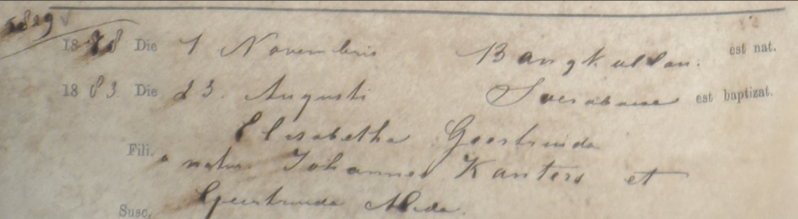 1829
18 78 Die 1 Novembris Bangkallan. est nat.
18 83 Die 23. Augusti Soerabaia est baptizat.
Elisabetha Geertruida
Fili. a natur. Johannes Kanters et
Susc. Geertruida Alida.